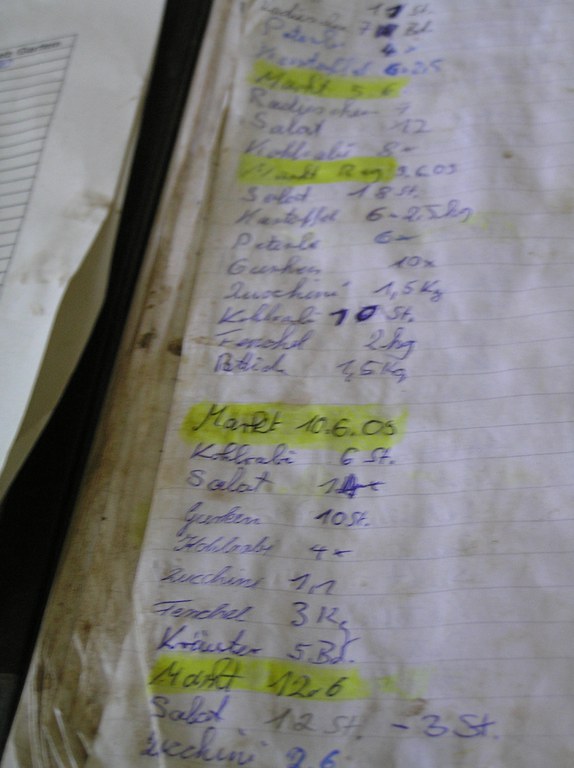 St.
Peterle 4x
Kartoffel 6-25
Markt 5.6
Radieschen 7
Salat 12
Kohlrabi 8x
Markt 9.6.05
Salat 18 St.
Kartoffel 6-25kg
Peterle 6x
Gurken 10x
Zucchini 1,5 Kg
Kohlrabi 10 St.
Fenchel 2kg
1,5 Kg
Markt 10.6.05
Kohlrabi 6 St.
Salat 14x
Gurken 10 St.
Kohlrabi 4x
Zucchini 1,1
Fenchel 3 Kg
Kräuter 5 Bd.
Markt 12.6
Salat 12 St. - 3 St.
Zucchini 2,6